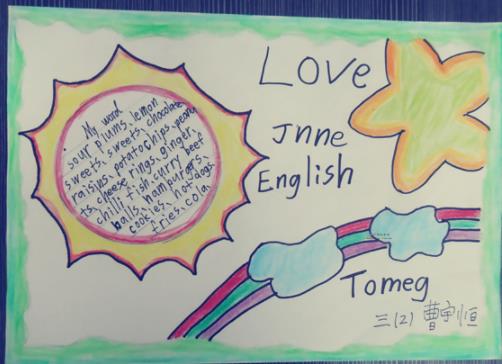 My word
sour plums, lemon
sweets, sweets, chocolate
raisins, potato chips, peanu
ts, cheese rings, ginger,
chilli, fish, curry beef
balls, hamburgers,
cookies, hot dogs.
fries, cola,
Love
Jnne
English
Tomeg
三(2) 曹宇恒